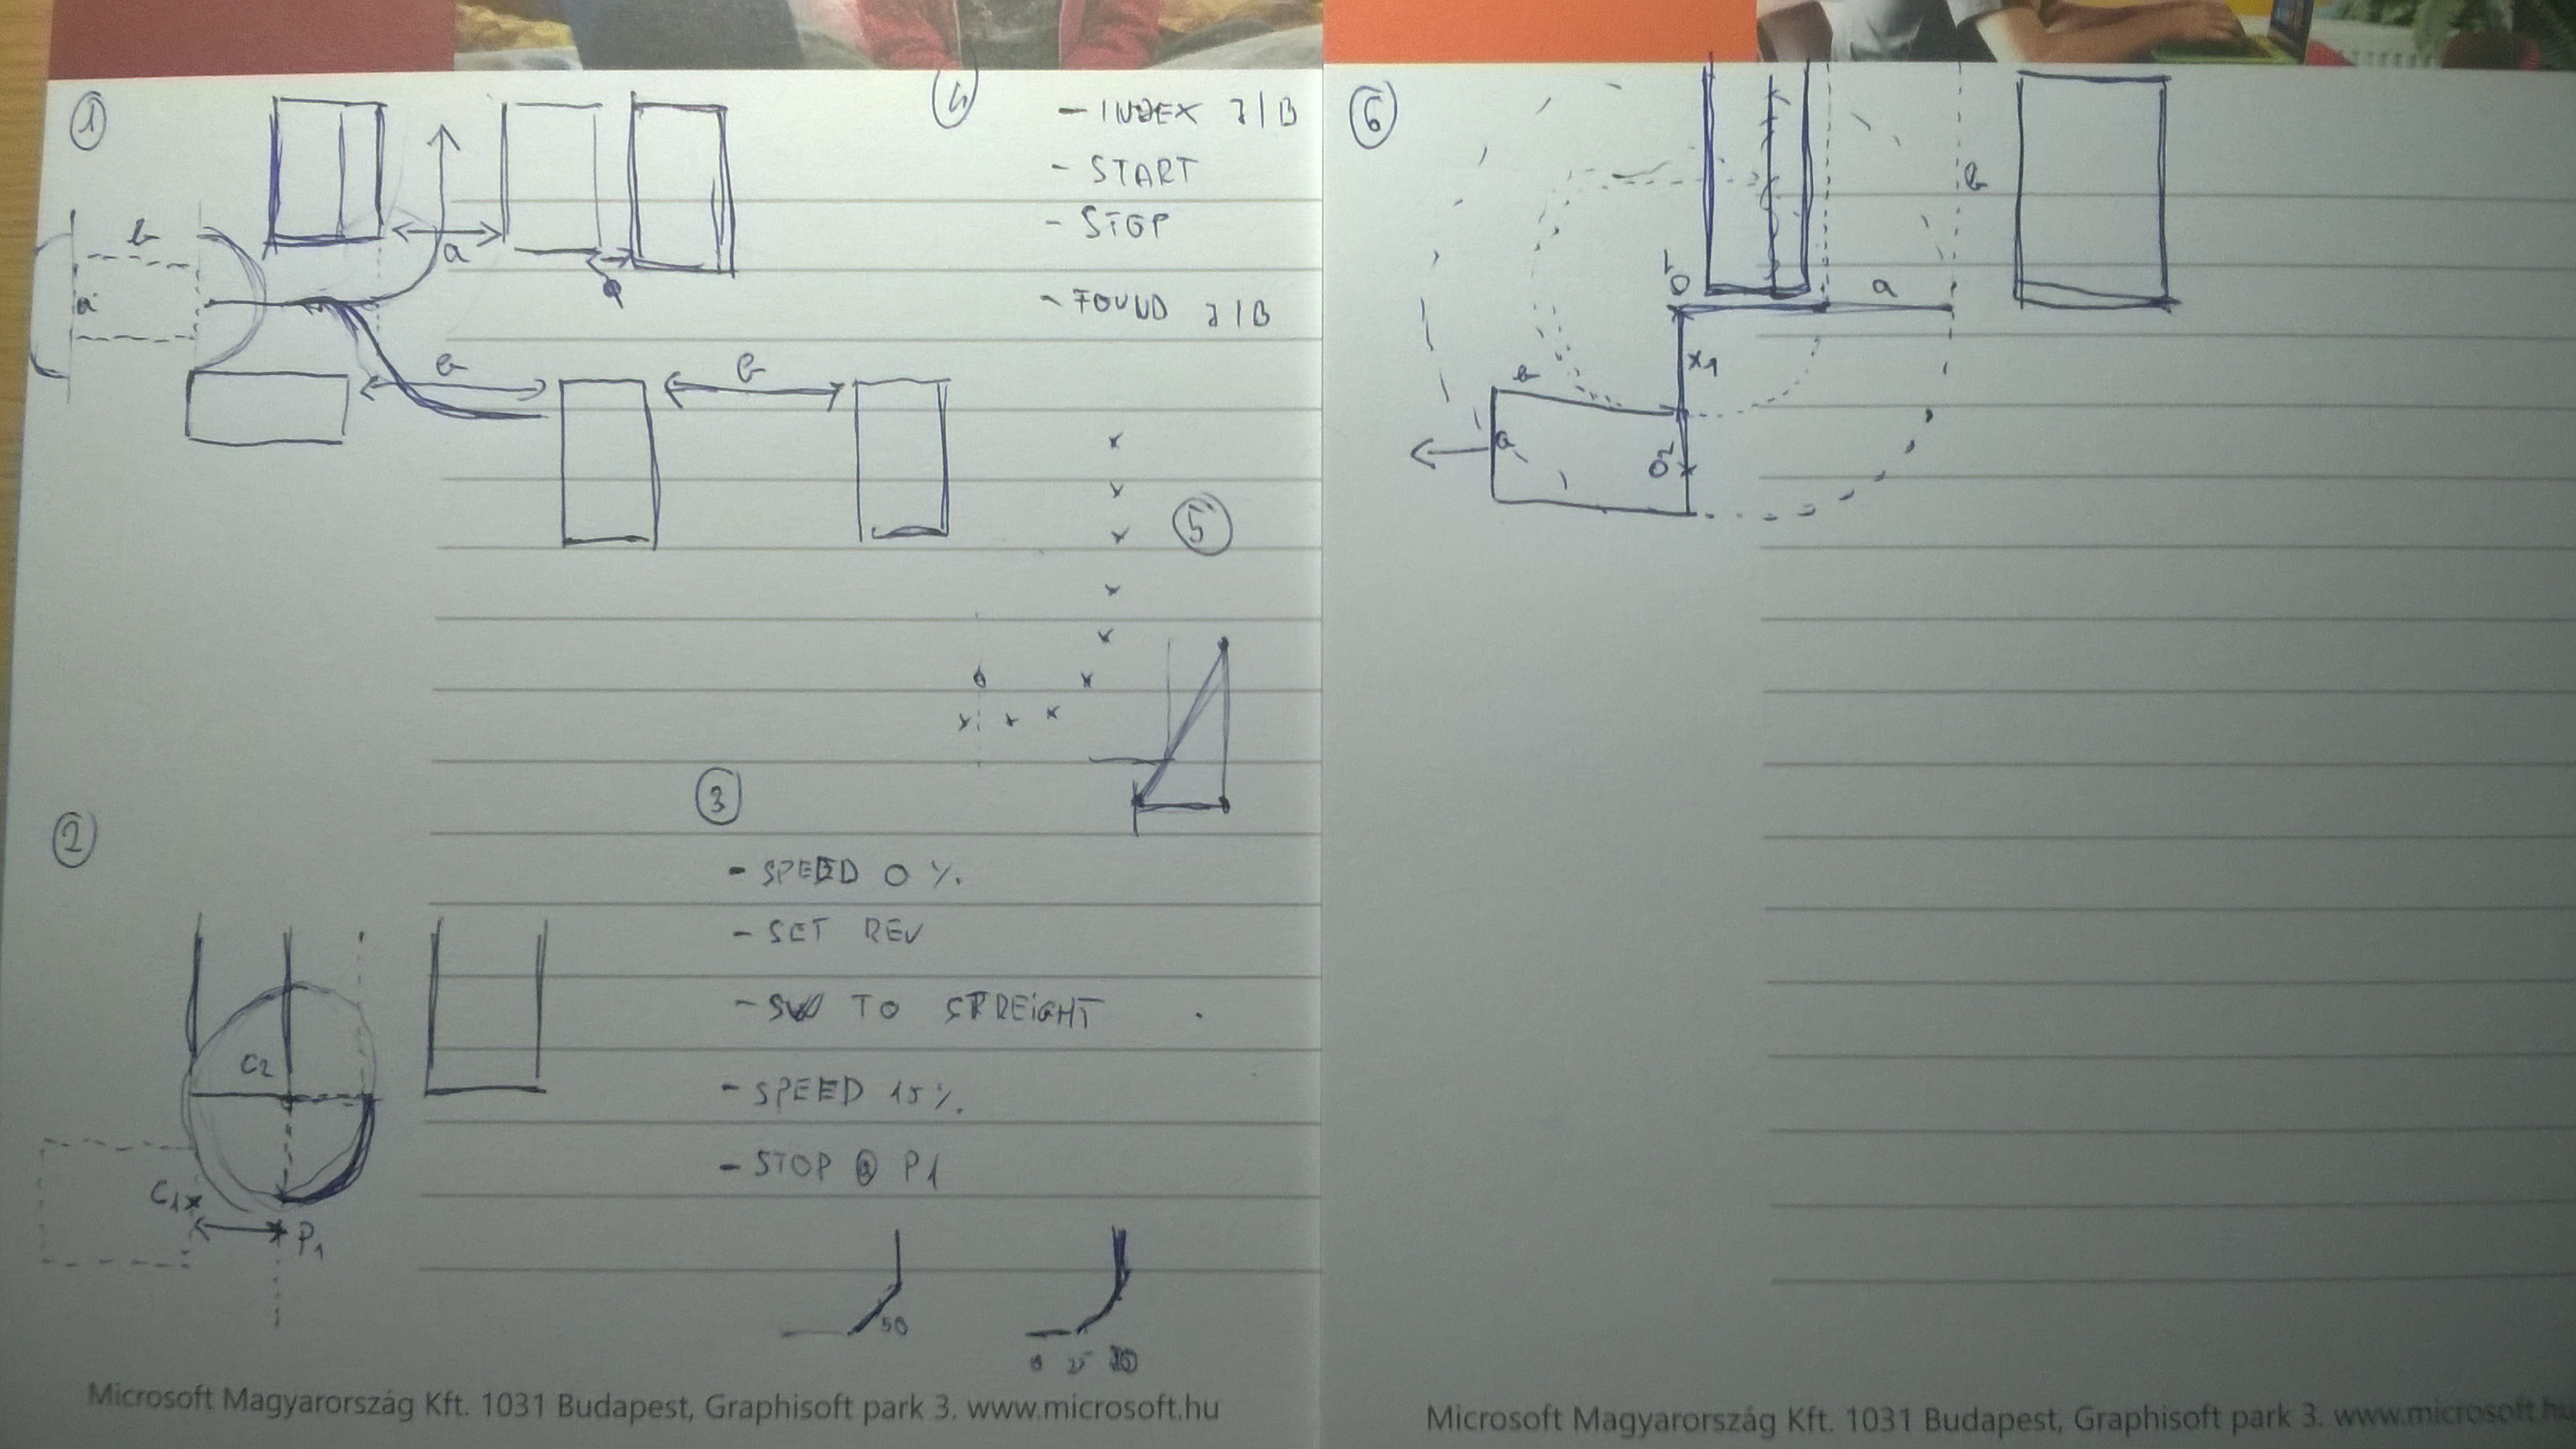 1
b
a
a
b
b
4
- INDEX J/B
- START
- STOP
- FOUND J/B
5
2
C2
C1
P1
3
- SPEED 0 %.
- SET REV
- SW TO STREIGHT
- SPEED 15 %.
- STOP @ P1
50
Microsoft Magyarország Kft. 1031 Budapest, Graphisoft park 3. www.microsoft.hu
6
b
O1
a
x1
b
a
O2
Microsoft Magyarország Kft. 1031 Budapest, Graphisoft park 3. www.microsoft.hu